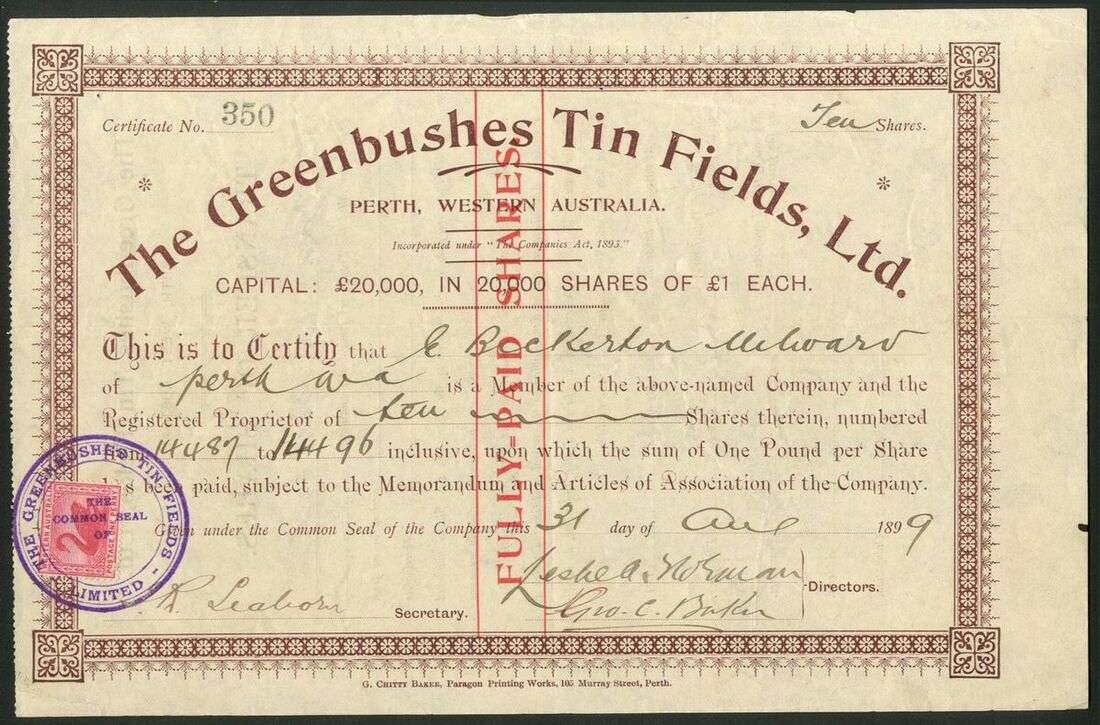 Certificate No. 350
Ten Shares.
The Greenbushes Tin Fields, Ltd.
PERTH, WESTERN AUSTRALIA.
Incorporated under "The Companies Act, 1893."
CAPITAL: £20,000, IN 20,000 SHARES OF £1 EACH.
FULLY-PAID SHARES.
This is to Certify that E. Bickerton Milward
of Perth WA is a Member of the above-named Company and the
Registered Proprietor of ten Shares therein, numbered
from 14487 to 14496 inclusive, upon which the sum of One Pound per Share
has been paid, subject to the Memorandum and Articles of Association of the Company.
Given under the Common Seal of the Company this 31 day of Aug 1899
THE GREENBUSHES TIN FIELDS - LIMITED -
THE
COMMON SEAL
OF
WESTERN AUSTRALIA
POSTAGE ONE PENNY
Leslie A. Norman
Directors.
R. Seaborn Secretary.
Geo. C. Baker
G. CHITTY BAKER, Paragon Printing Works, 105 Murray Street, Perth.